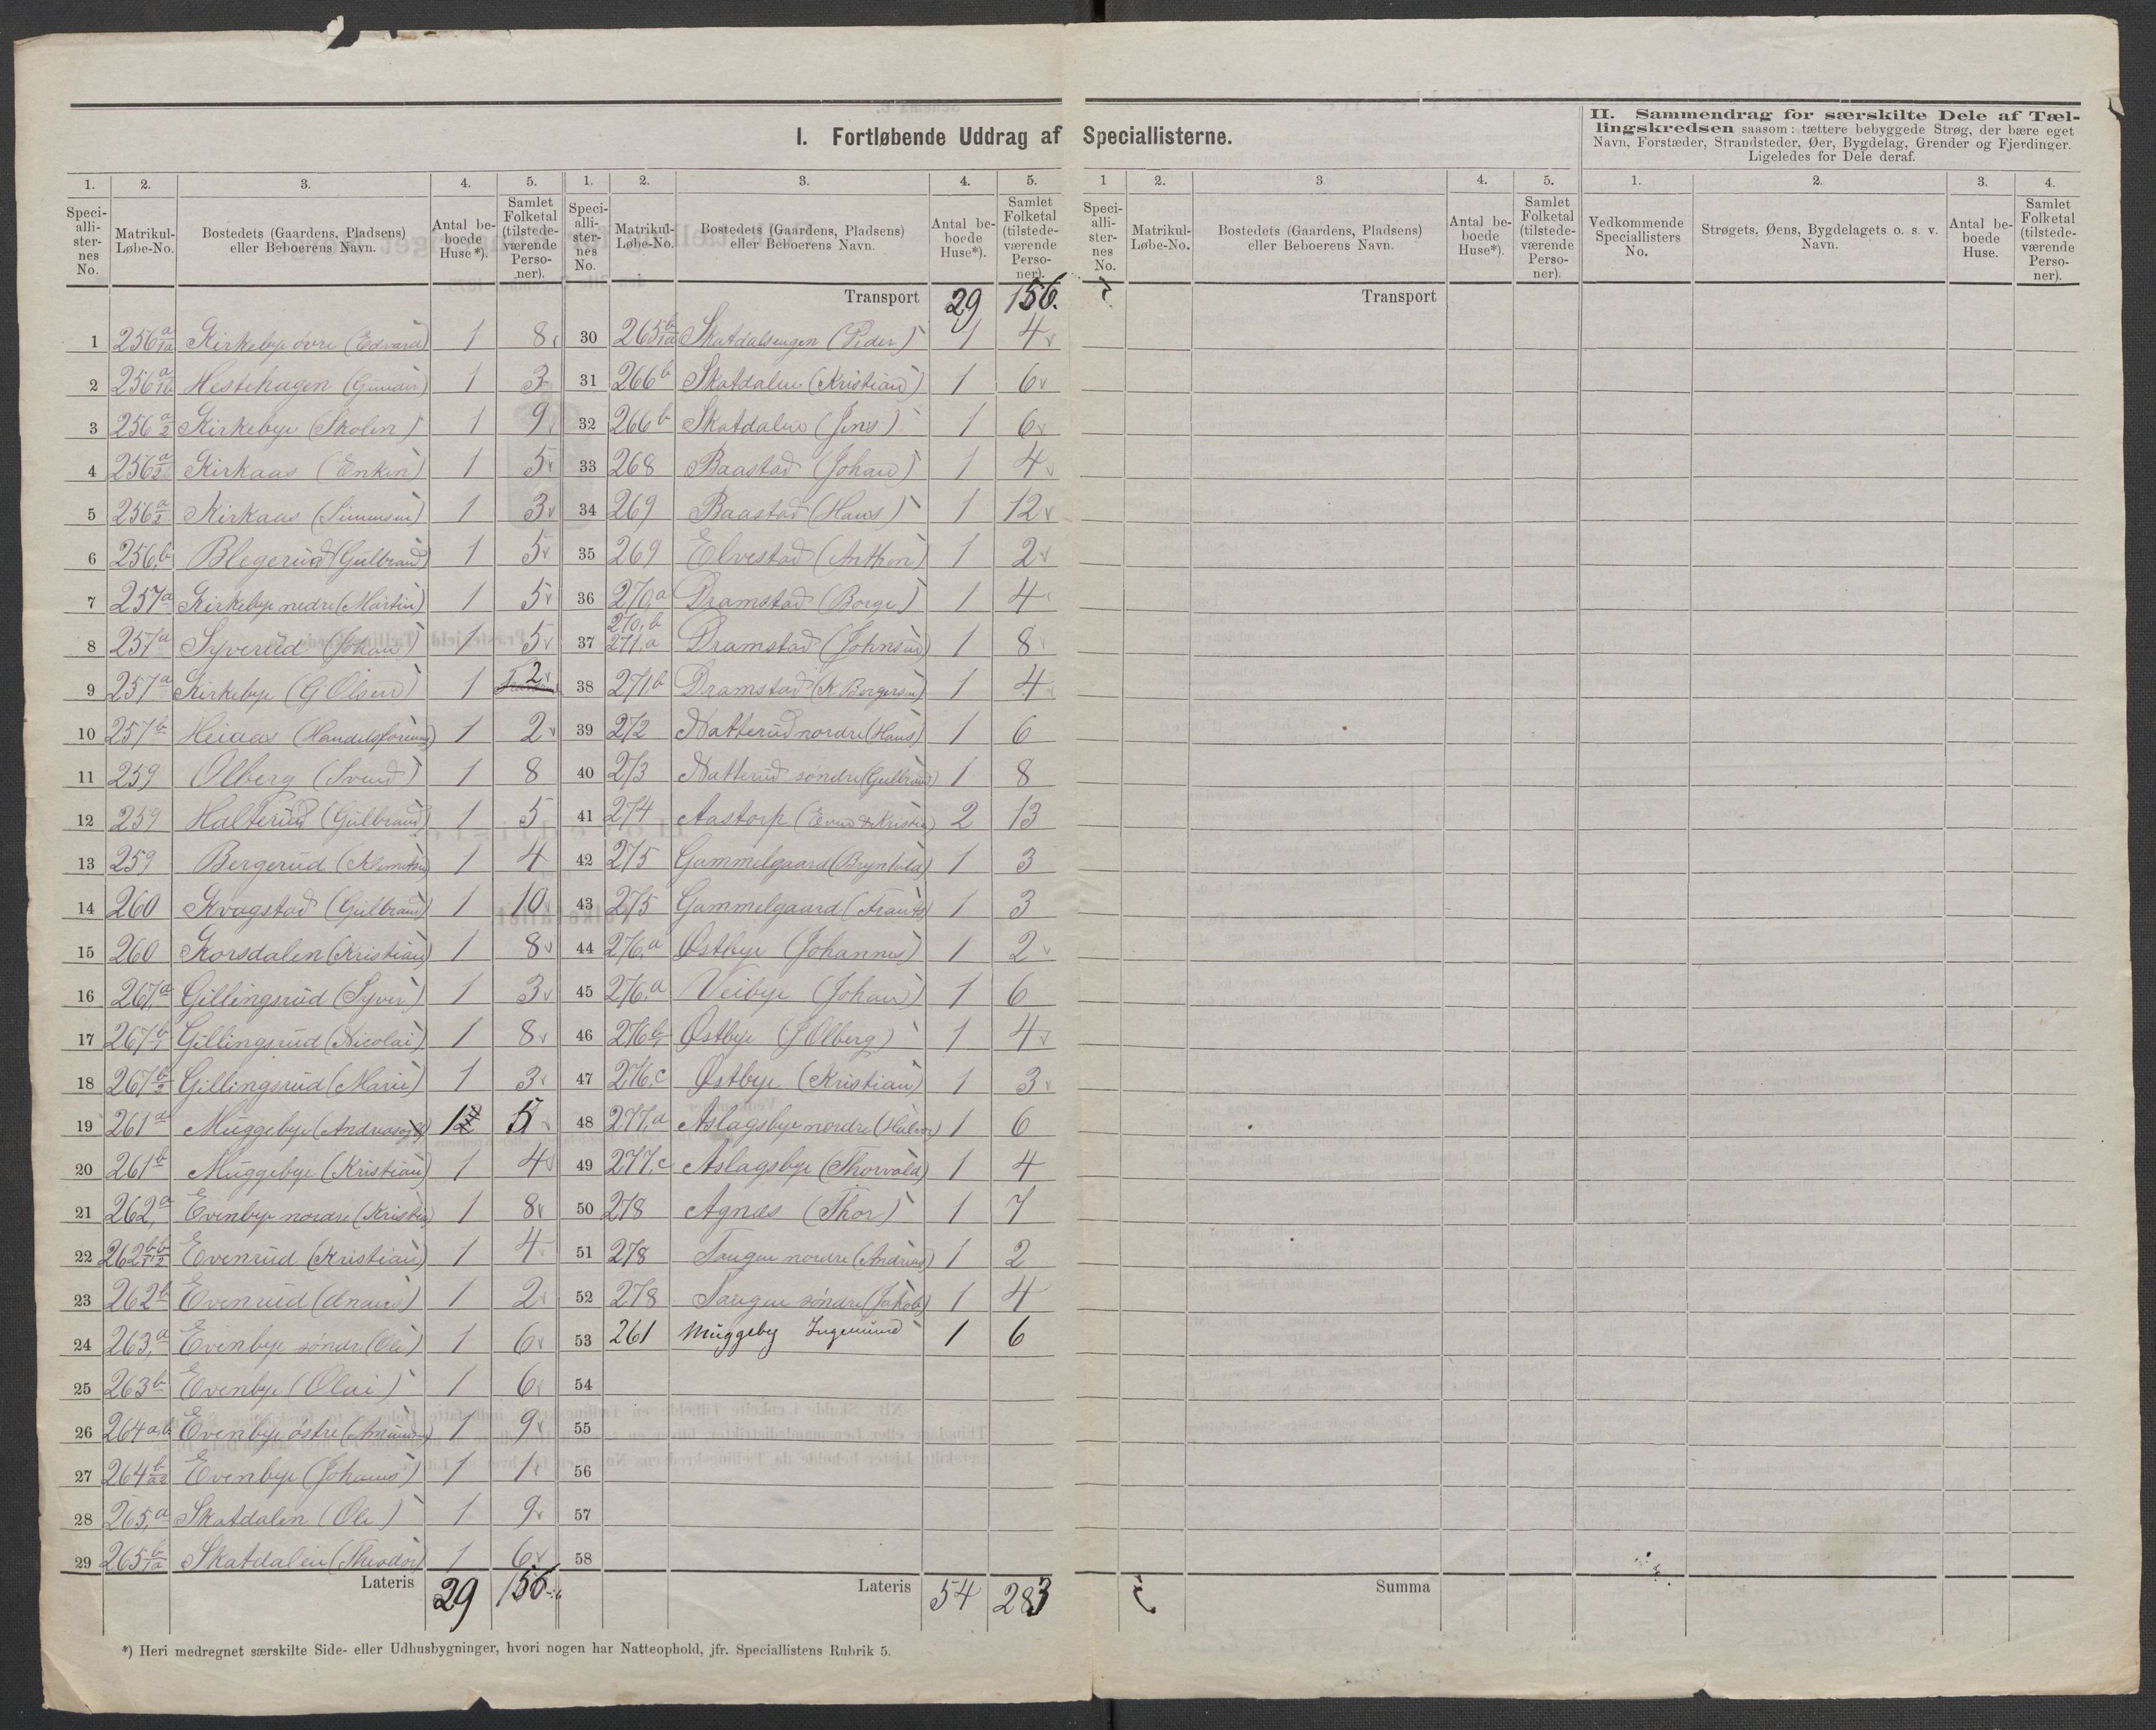 I. Fortløbende Uddrag af Speciallisterne.
II. Sammendrag for særskilte Dele af Tæl-
lingskredsen saasom: tættere bebyggede Strøg, der bære eget
Navn, Forstæder, Strandsteder, Øer, Bygdelag, Grender og Fjerdinger.
Ligeledes for Dele deraf.
1. 2. 3. 4. 5. 1. 2. 3. 4. 5. 1 2. 3 4. 5. 1. 2. 3. 4.
Speci-alli-ster-nes No. Matrikul-Løbe-No. Bostedets (Gaardens, Pladsens) eller Beboerens Navn. Antal be-boede Huse*). Samlet Folketal (tilstede-værende Perso-ner).
Speci-alli-ster-nes No. Matrikul-Løbe-No. Bostedets (Gaardens, Pladsens) eller Beboerens Navn. Antal be-boede Huse*). Samlet Folketal (tilstede-værende Perso-ner).
Speci-alli-ster-nes No. Matrikul-Løbe-No. Bostedets (Gaardens, Pladsens) eller Beboerens Navn. Antal be-boede Huse*). Samlet Folketal (tilstede-værende Perso-ner).
Vedkommende Speciallisters No. Strøgets, Øens, Bygdelagets o. s. v. Navn. Antal be-boede Huse. Samlet Folketal (tilstede-værende Perso-ner).
1 256 a/1a Kirkebye övre (Edvard) 1 8
2 256 a/1b Hestehagen (Gunder) 1 3
3 256 a/2 Kirkebye (Skolen) 1 9
4 256 a Kirkaas (Enken) 1 5
5 256 a Kirkaas (Simensen) 1 3
6 256,b Blegerud (Gulbrand) 1 5
7 257a Kirkebye nedre (Martin) 1 5
8 257a Syverud (Johan) 1 5
9 257a Kirkebye (G Olsen) 1 2
10 257b Heiaas (Handelsforening) 1 2
11 259 Olberg (Svend) 1 8
12 259 Halterud (Gulbrand) 1 5
13 259 Bergerud (Klemetsen) 1 4
14 260 Kvagstad (Gulbrand) 1 10
15 260 Korsdalen (Kristian) 1 8
16 267,a Gillingsrud (Syver) 1 3
17 267 b/1 Gillingsrud (Nicolai) 1 8
18 267 b/2 Gillingsrud (Marie) 1 3
19 261a Muggebye (Andreas) 1 5
20 261b Muggebye (Kristian) 1 4
21 262,a Evenbye nordre (Kristian) 1 8
22 262 Evenrud (Kristian) 1 4
23 262b Evenrud 1 2
24 263,a Evenbye söndre (Ole) 1 6
25 263b Evenbye (Olai) 1 6
26 264a,b Evenbye östre (Amundsen) 1 9
27 264 b Evenbye (Johannes) 1 1
28 265,a Skatdalen (Ole) 1 9
29 265 b/1a Skatdalen (Theodor) 1 6
Lateris 29 156
Transport 29 156.
30 265 b Skatdalsengen (Peder) 1 4
31 266b Skatdalen (Kristian) 1 6
32 266b Skatdalen (Jens) 1 6
33 268 Baastad (Johan) 1 4
34 269 Baastad (Hans) 1 12
35 269 Elvestad (Anthon) 1 2
36 270,a Dramstad (Borge) 1 4
37 270,b 271,a Dramstad (Johnsen) 1 8
38 271b Dramstad (K. Borgersen) 1 4
39 272 Natterud nordre (Hans) 1 6
40 273 Natterud søndre (Gulbrand) 1 8
41 274 Aastorp (Even & Kristian) 2 13
42 275 Gammelgaard (Brynhild) 1 3
43 275 Gammelgaard (Frants) 1 3
44 276,a Østbye (Johannes) 1 2
45 276,a Veibye (Johan) 1 6
46 276b, Østbye (J Olberg) 1 4
47 276,c Østbye (Kristian) 1 3
48 277,a Aslagsbye nordre (Halvor) 1 6
49 277,c Aslagsbye (Thorvald) 1 4
50 278 Agnæs (Thor) 1 7
51 278 Tangen nordre (Andreas) 1 2
52 278 Tangen söndre (Jakob) 1 4
53 261 Muggeby Ingemund 1 6
54
55
56
57
58
Lateris 54 283
Transport
Summa
*) Heri medregnet særskilte Side- eller Udhusbygninger, hvori nogen har Natteophold, jfr. Speciallistens Rubrik 5.